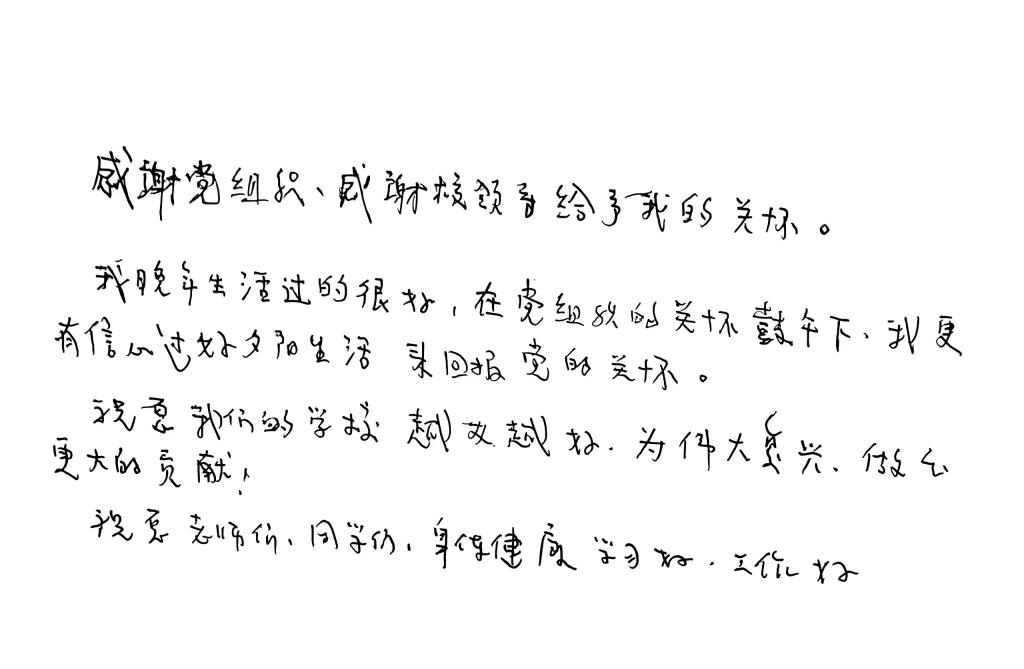 感谢党组织、感谢校领导给予我的关怀。
我晚年生活过的很好,在党组织的关怀鼓午下、我更
有信心过好夕阳生活 来回报党的关怀。
祝愿我们的学校 越办越好.为伟大复兴、做出
更大的贡献!
祝愿老师们、同学们、身体健康 学习好.工作好